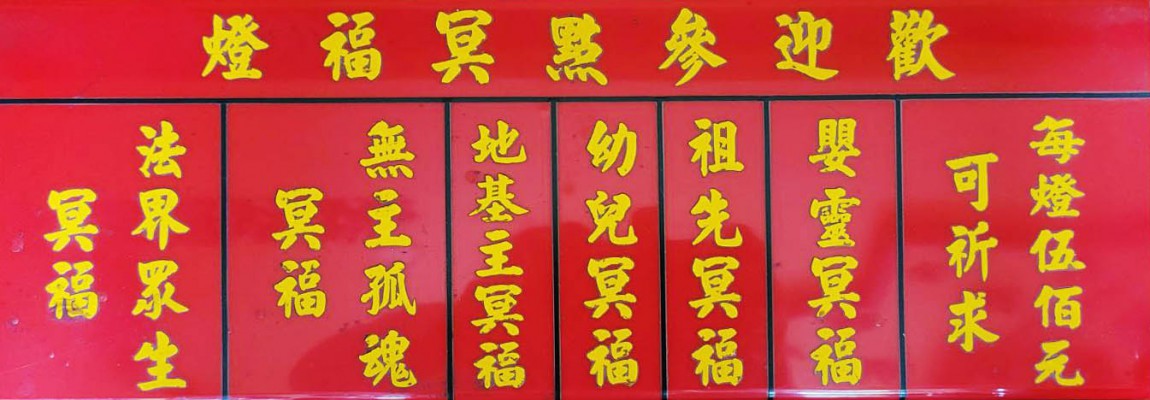 歡迎參點冥福燈
每燈伍佰元
可祈求
嬰靈冥福
祖先冥福
幼兒冥福
地基主冥福
無主孤魂
冥福
法界眾生
冥福